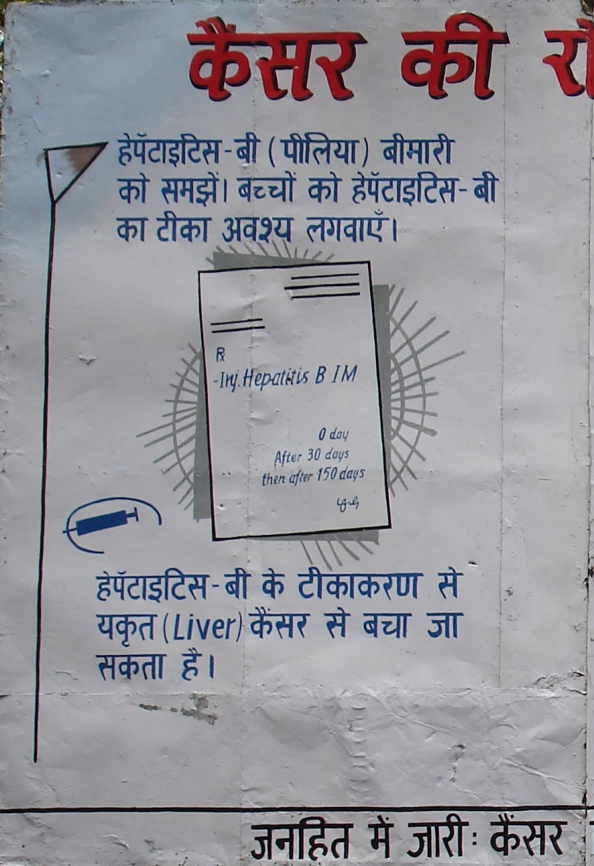 कैंसर की
हेपॅटाइटिस-बी (पीलिया) बीमारी
को समझें। बच्चों को हेपॅटाइटिस-बी
का टीका अवश्य लगवाएँ।
℞
-Inj. Hepatitis B IM
0 day
After 30 days
then after 150 days
हेपॅटाइटिस-बी के टीकाकरण से
यकृत (Liver) कैंसर से बचा जा
सकता है।
जनहित में जारी: कैंसर